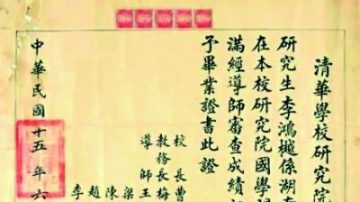 清華學校研究院
研究生李鴻樾係湖
在本校研究院國學
滿經導師審查成績
予畢業證書此證
校長曹
教務長梅
導師王
梁
陳
趙
李
中華民國十五年六